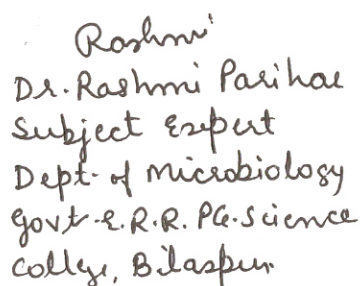 Rashmi
Dr. Rashmi Parihar
Subject Expert
Dept. of Microbiology
Govt. E.R.R. PG. Science
College, Bilaspur